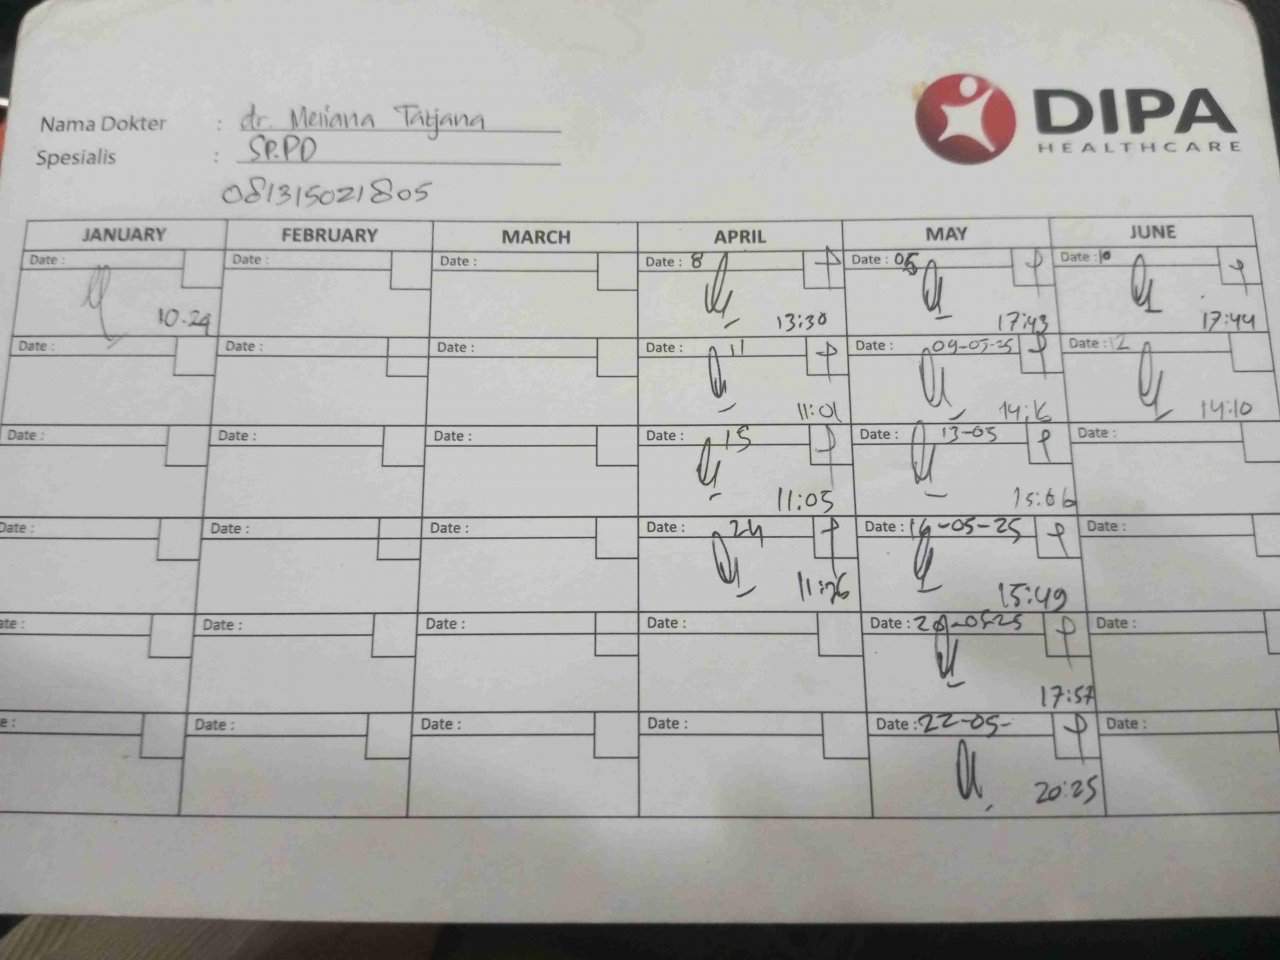 DIPA
HEALTHCARE
Nama Dokter : dr. Meriana Tatjana
Spesialis : SP.PD
081315021805
JANUARY FEBRUARY MARCH APRIL MAY JUNE
Date : Date : Date : Date : 8 Date : 05 Date : 10
10.24 13:30 17:43 17:44
Date : Date : Date : Date : 11 Date : 09-05-25 Date : 12
11:01 14:16 14:10
Date : Date : Date : Date : 15 Date : 13-05 Date :
11:05 15:06
Date : Date : Date : Date : 24 Date : 16-05-25 Date :
11:26 15:49
ate : Date : Date : Date : Date : 20-05-25 Date :
17:57
e : Date : Date : Date : Date : 22-05- Date :
20:25